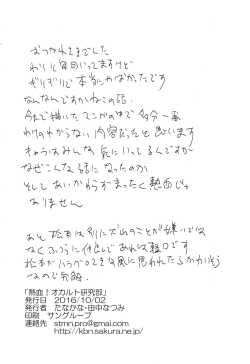 おつかれさまでした
わりと毎回いってますけど
ギリギリで本当にやばかったです
なんなんですかねこの話
今まで描いてたこがの中で多分一番
わけのわからない内容だったと思います
キャラもみんな 死にいってるんですが
なぜこんな話になったのか
そしてあいかわらずまったく熱血じゃ
ありません
あと 松本は別に 山のことが嫌いでは
なくふつうに仲良しであれは軽口です
松本がハラグロてきな風に思われたらかわいそう
なので弁解
「熱血！オカルト研究部」
発行日 2016/10/02
発行者 たなかな・田中なつみ
印刷 サングループ
連絡先 stmn.pro@gmai.com
http://kbn.sakura.ne.jp/